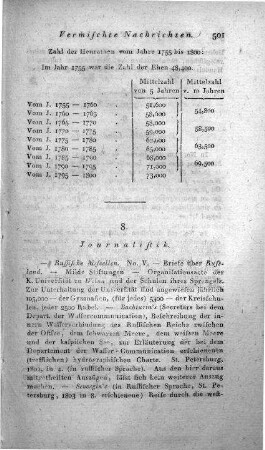 Vermischte Nachrichten. 501
Zahl der Heurathen vom Jahre 1755 bis 1800:
Im Jahr 1755 war die Zahl der Ehen 48,400.
Mittelzahl Mittelzahl
von 5 Jahren v. 10 Jahren
Vom J. 1755 — 1760 51,600
54,800
Vom J. 1760 — 1765 58,000
Vom J. 1765 — 1770 58,000
58,500
Vom J. 1770 — 1775 59,000
Vom J. 1775 — 1780 62,000
63,500
Vom J. 1780 — 1785 65,000
Vom J. 1785 — 1790 68,000
69,500
Vom J. 1790 — 1795 71,000
Vom J. 1795 — 1800 73,000
8.
Journalistik.
Russische Miscellen. No. V. — Briefe über Russ-
land. — Milde Stiftungen — Organisationsacte der
K. Universität zu Wilna und der Schulen ihres Sprengels.
Zur Unterhaltung der Universität sind angewiesen jährlich
105,000 — der Gymnasien, (für jedes) 5500 — der Kreisschu-
len, (oder 2500 Rubel. — (Secretärs bey dem
Depart. der Wassercommunication), Beschreibung der in-
neren Wasserverbindung des Russischen Reichs zwischen
der Ostsee, dem schwarzen Meere, dem weissen Meere
und der kaspischen See, zur Erläuterung der bey dem
Departement der Wasser-Communication erschienenen
(trefflichen) hydrographischen Charte. St. Petersburg,
in 2. (in russischer Sprache). Aus den hier dar-
aus mitgetheilten Auszügen, lässt sich kein weiterer Auszug
machen. — (in Russischer Sprache, St. Pe-
tersburg, 1803 in 8. erschienene) Reise durch die west-